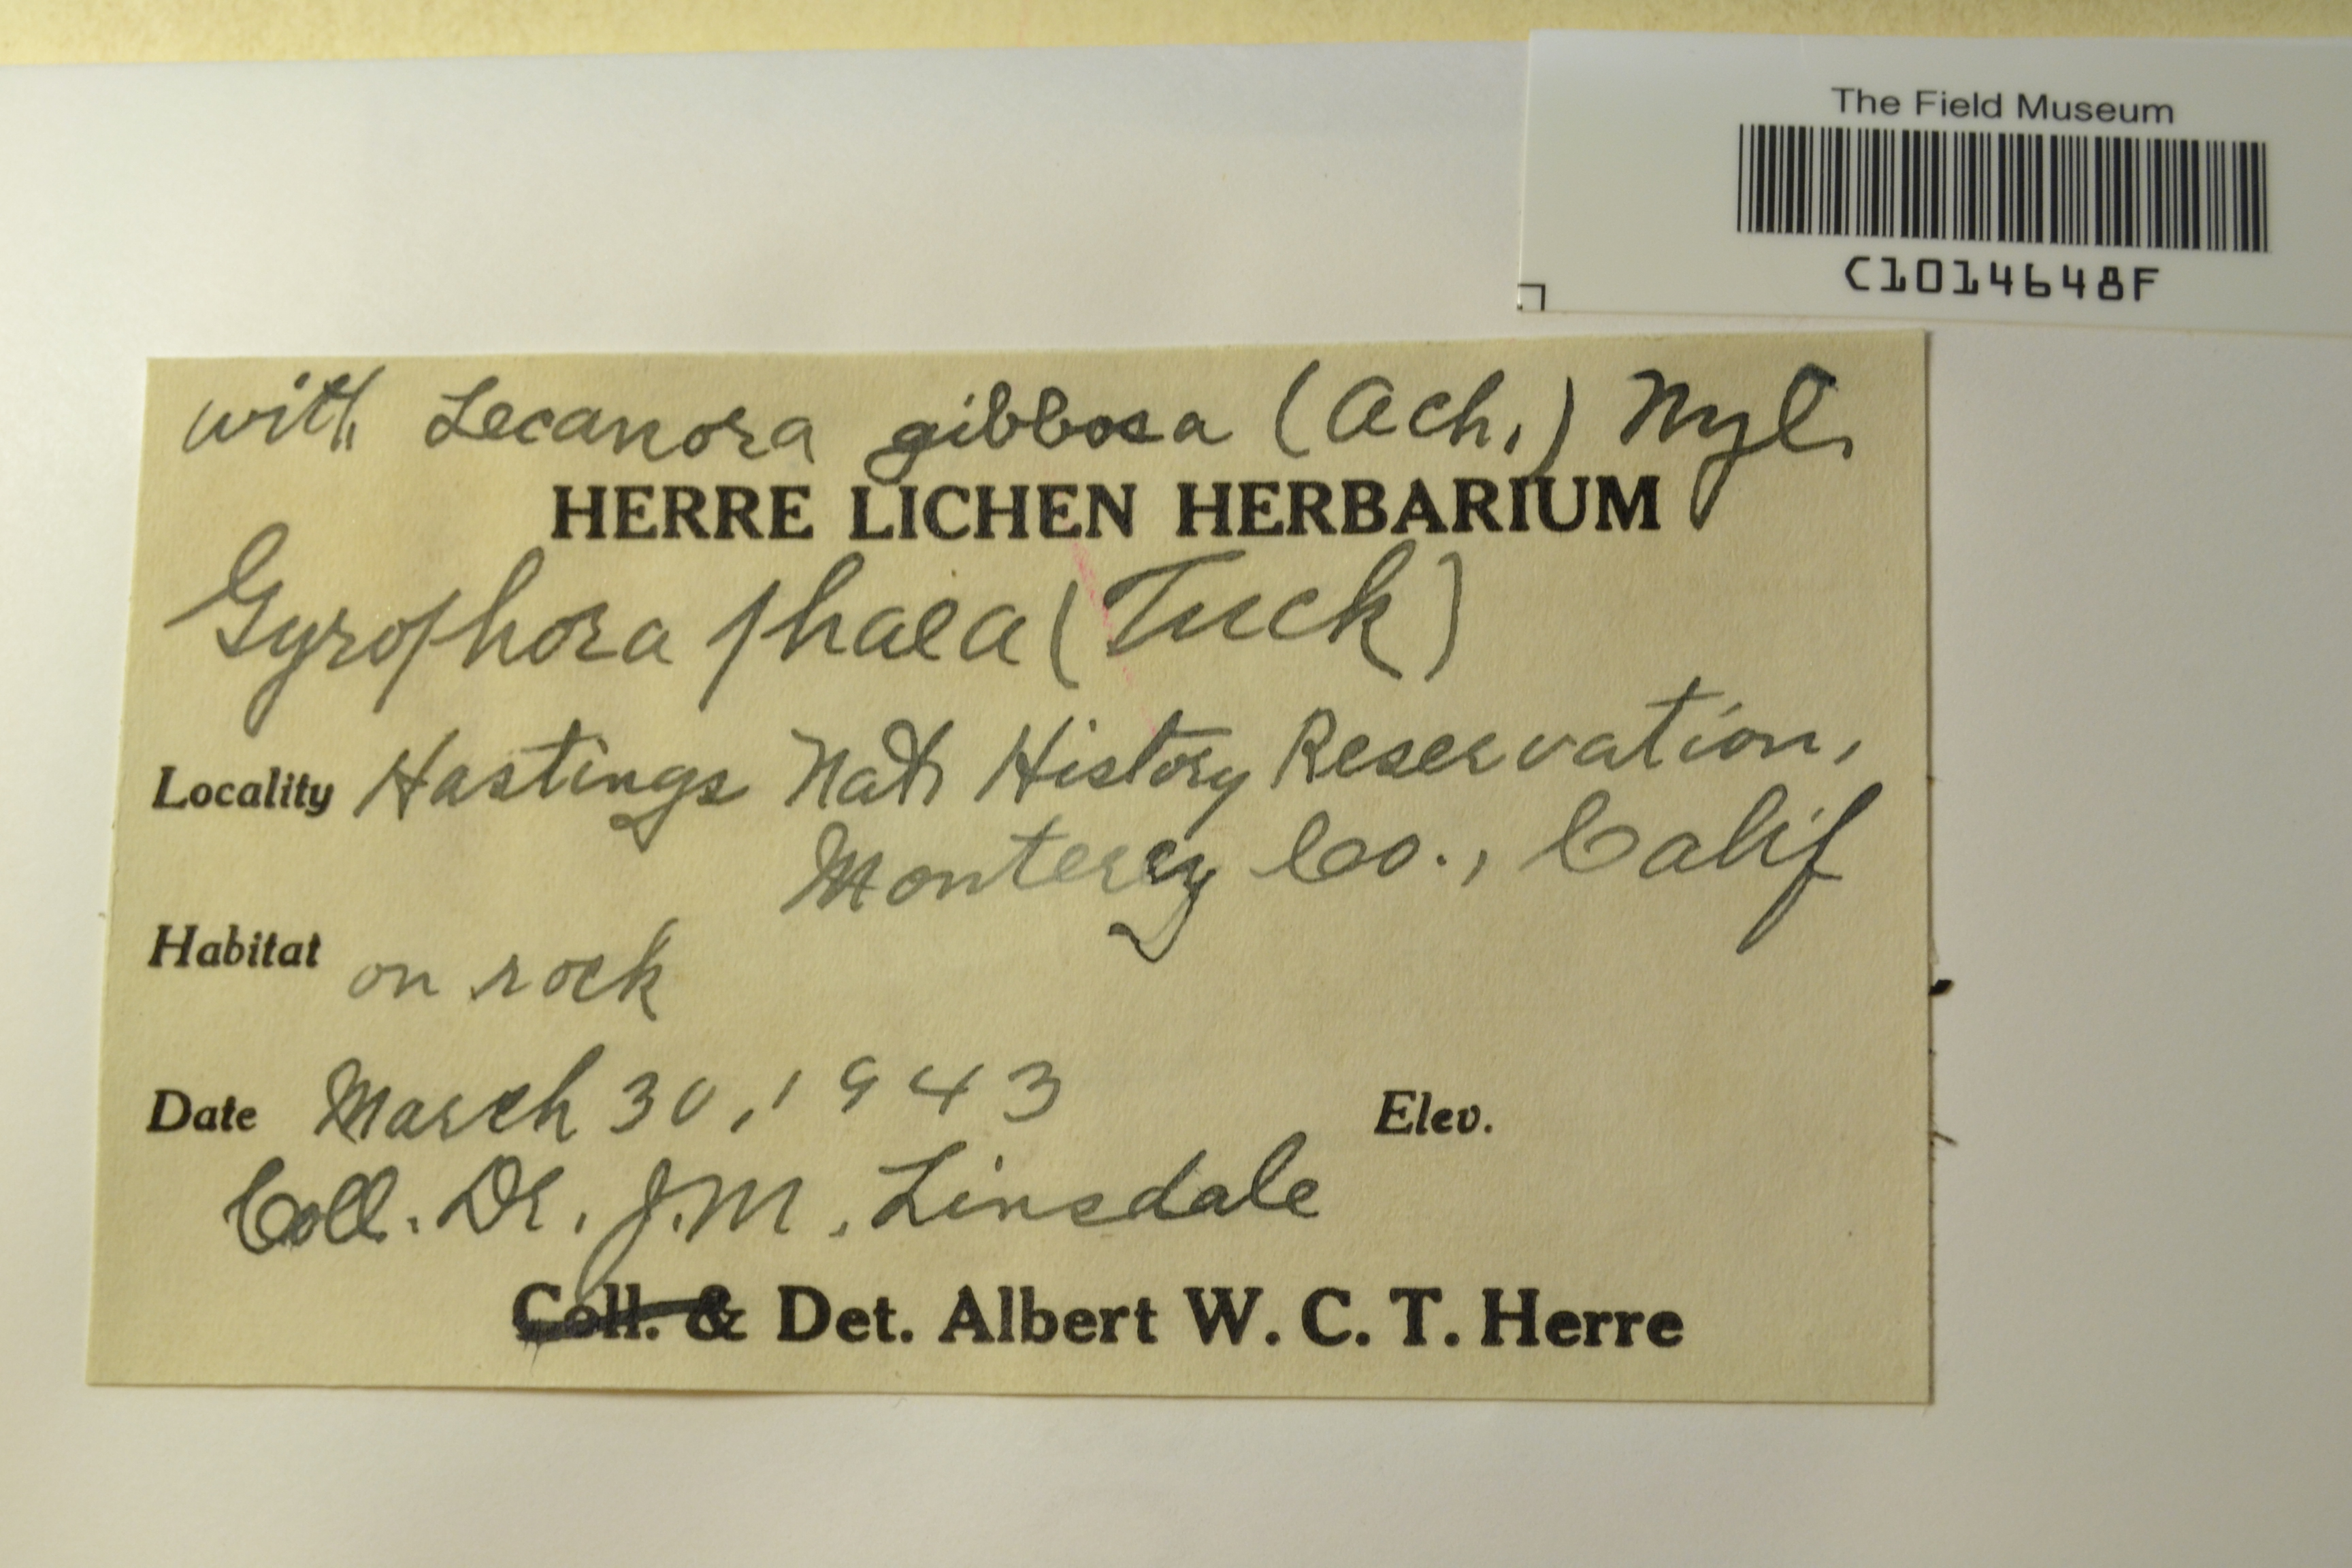 The Field Museum
C1014648F
with Lecanora gibbosa (Ach.) Nyl.
HERRE LICHEN HERBARIUM
Gyrophora phaea (Tuck)
Locality Hastings Nat. History Reservation,
Monterey Co., Calif
Habitat on rock
Date March 30, 1943 Elev.
Coll. Dr. J.M. Linsdale
Coll. & Det. Albert W. C. T. Herre